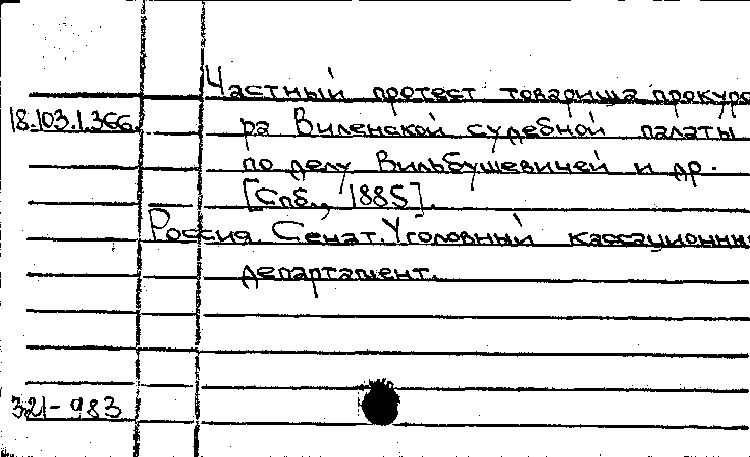 Частный протест товарища прокуро
18.103.1.366. ра Виленской судебной палаты
по делу Вильбушевичей и др.
[Спб., 1885].
Россия. Сенат. Уголовный кассационный
департамент.
321-983